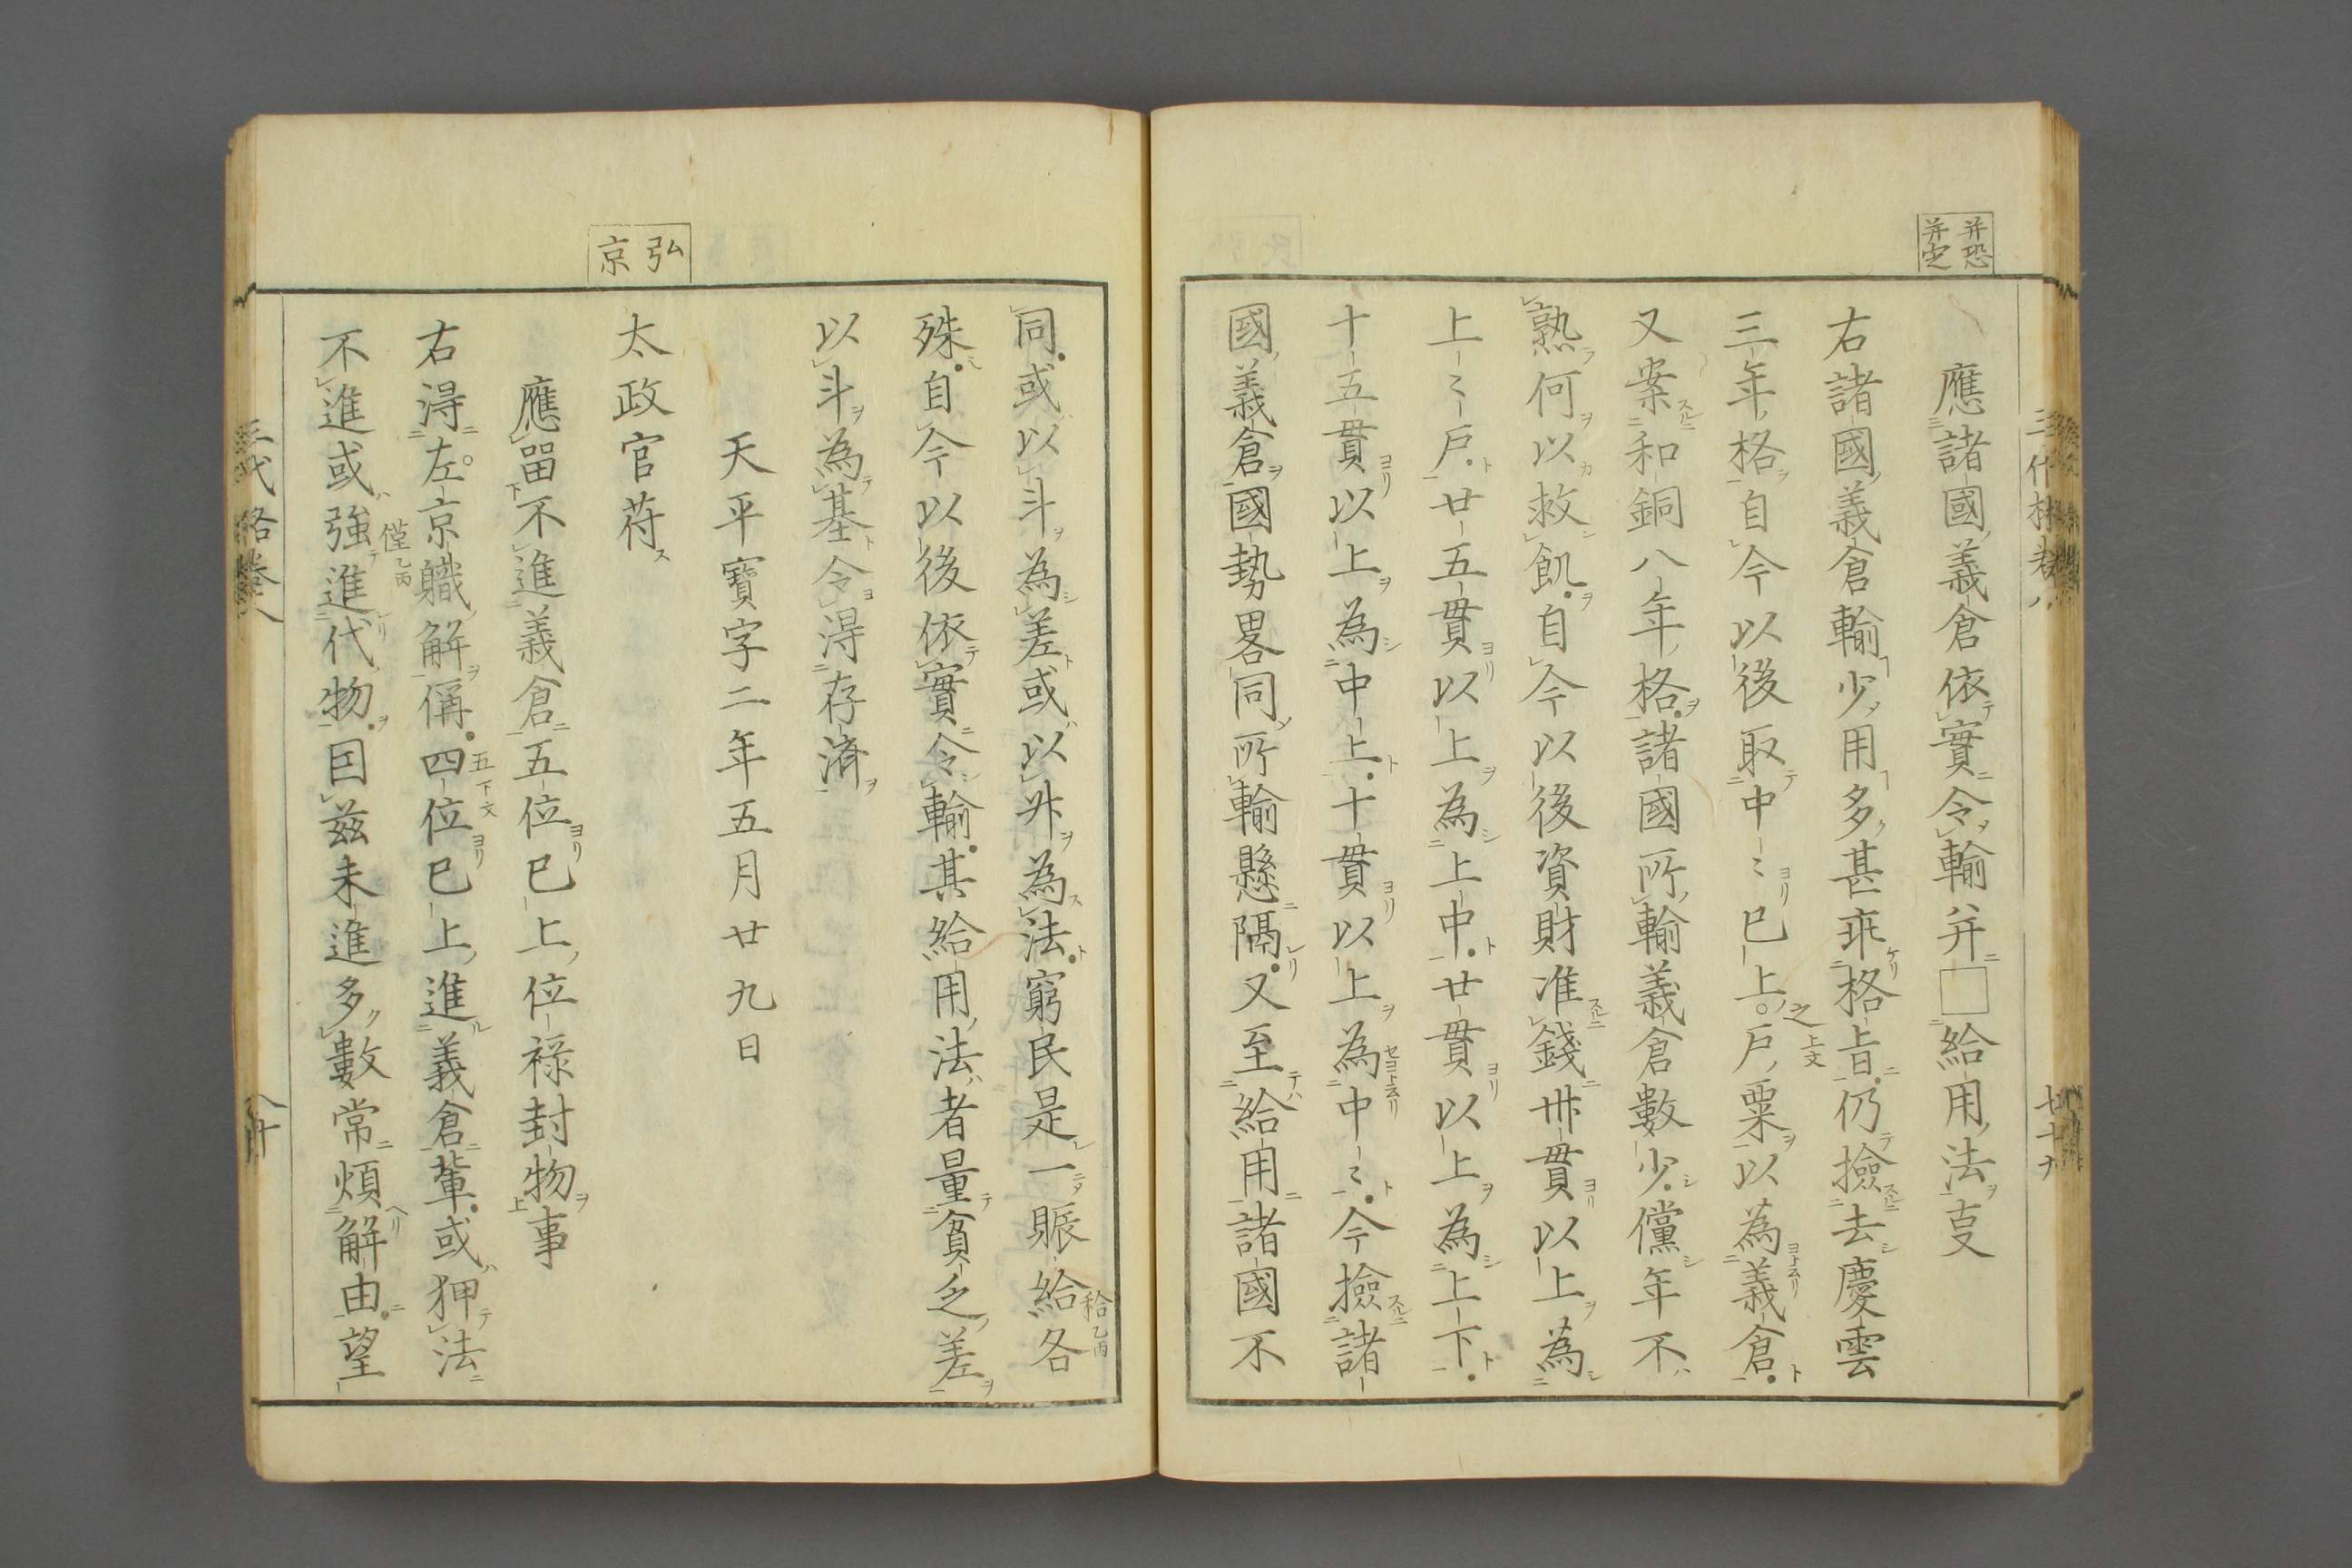 并恐
并定
應諸國義倉依實令輸并□給用法㕝
右諸國義倉輸少用多甚乖格旨仍撿去慶雲
三年格自今以後取中〻已上戶粟以為義倉
之上文
又案和銅八年格諸國所輸義倉數少儻年不
熟何以救飢自今以後資財准錢卅貫以上為
上〻戶廿五貫以上為上中廿貫以上為上下
十五貫以上為中上十貫以上為中〻今撿諸
國義倉國勢畧同所輸懸隔又至給用諸國不
同或以斗為差或以升為法窮民是一賑給各
秴乙丙
殊自今以後依實令輸其給用法者量貧乏差
以斗為基令得存濟
天平寶字二年五月廿九日
弘
京
太政官苻
應畱不進義倉五位已上位祿封物事
右得左京職解偁四位已上進義倉輩或狎法
五下文
不進或強進代物因茲未進多數常煩解由望
僅乙丙
三代格卷八